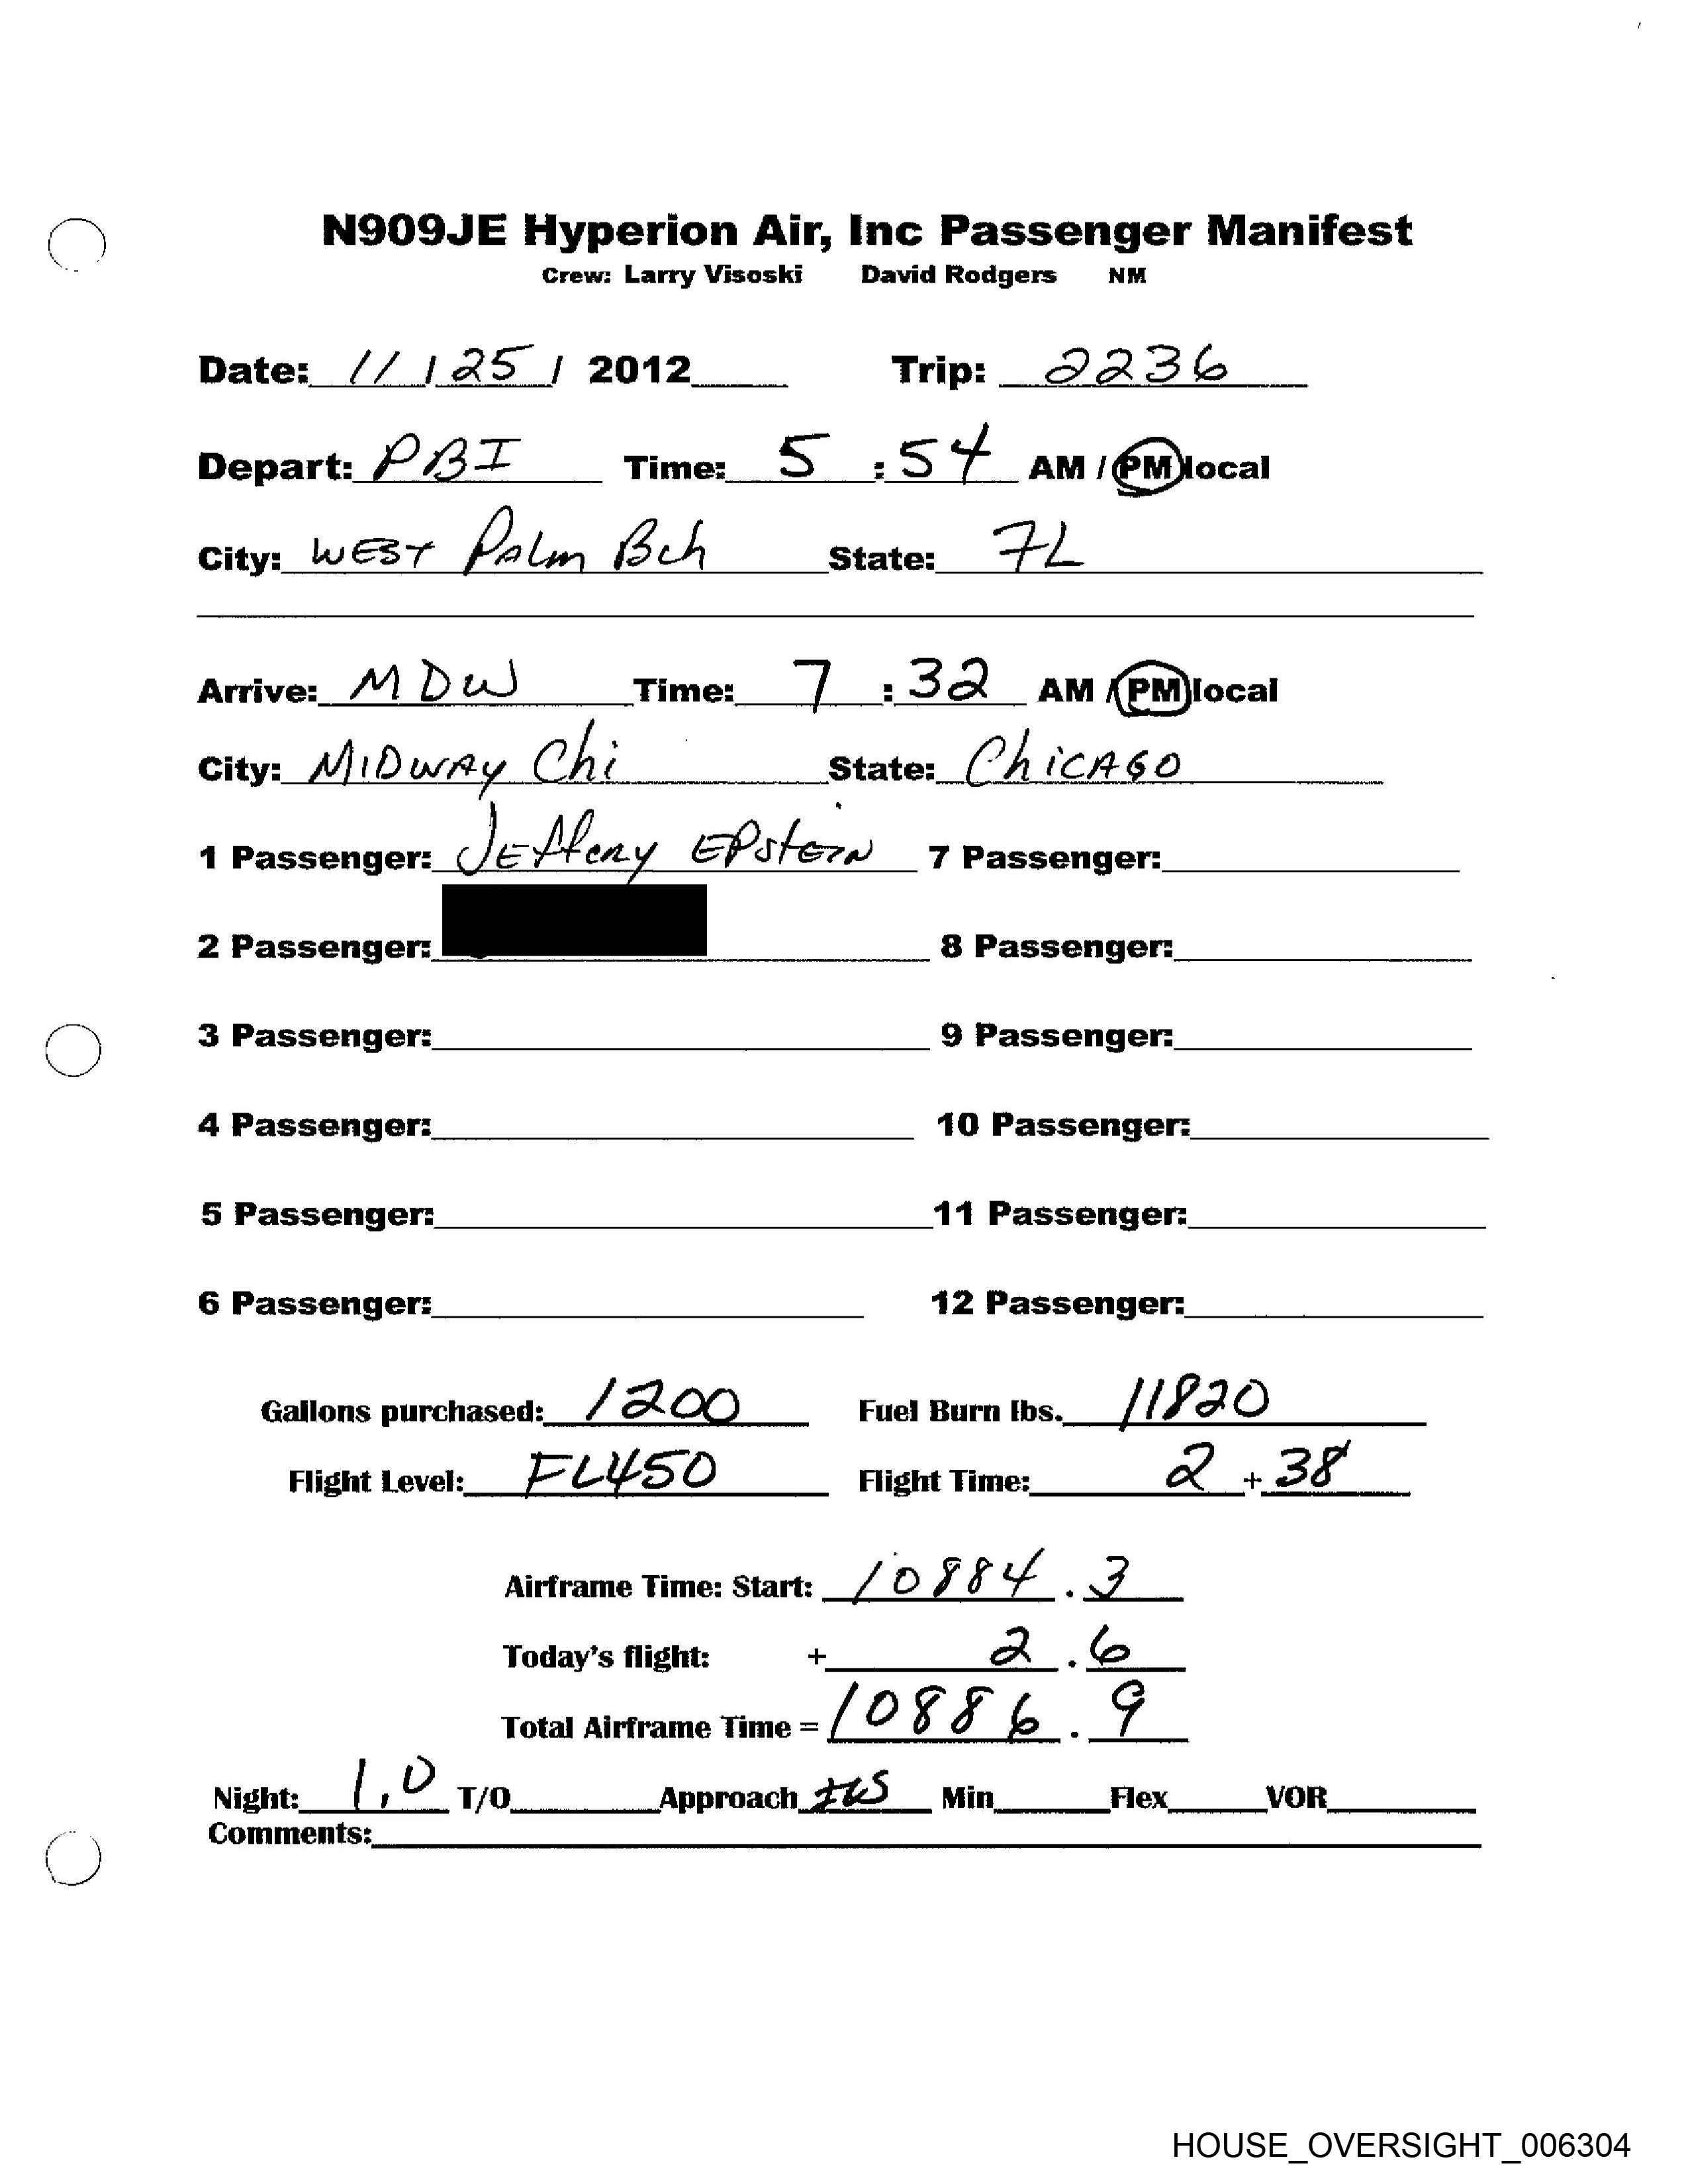 N909JE Hyperion Air, Inc Passenger Manifest
Crew: Larry Visoski David Rodgers NM
Date: 11 / 25 / 2012 Trip: 2236
Depart: PBI Time: 5 : 54 AM / PM local
City: WEST PALm Bch State: FL
Arrive: MDW Time: 7 : 32 AM / PM local
City: MIDWAY Chi State: ChiCAGO
1 Passenger: JEffery EPstEIN 7 Passenger:
2 Passenger: 8 Passenger:
3 Passenger: 9 Passenger:
4 Passenger: 10 Passenger:
5 Passenger: 11 Passenger:
6 Passenger: 12 Passenger:
Gallons purchased: 1200 Fuel Burn lbs. 11820
Flight Level: FL450 Flight Time: 2 + 38
Airframe Time: Start: 10884 . 3
Today's flight: + 2 . 6
Total Airframe Time = 10886 . 9
Night: 1.0 T/O Approach ILS Min Flex VOR
Comments:
HOUSE_OVERSIGHT_006304